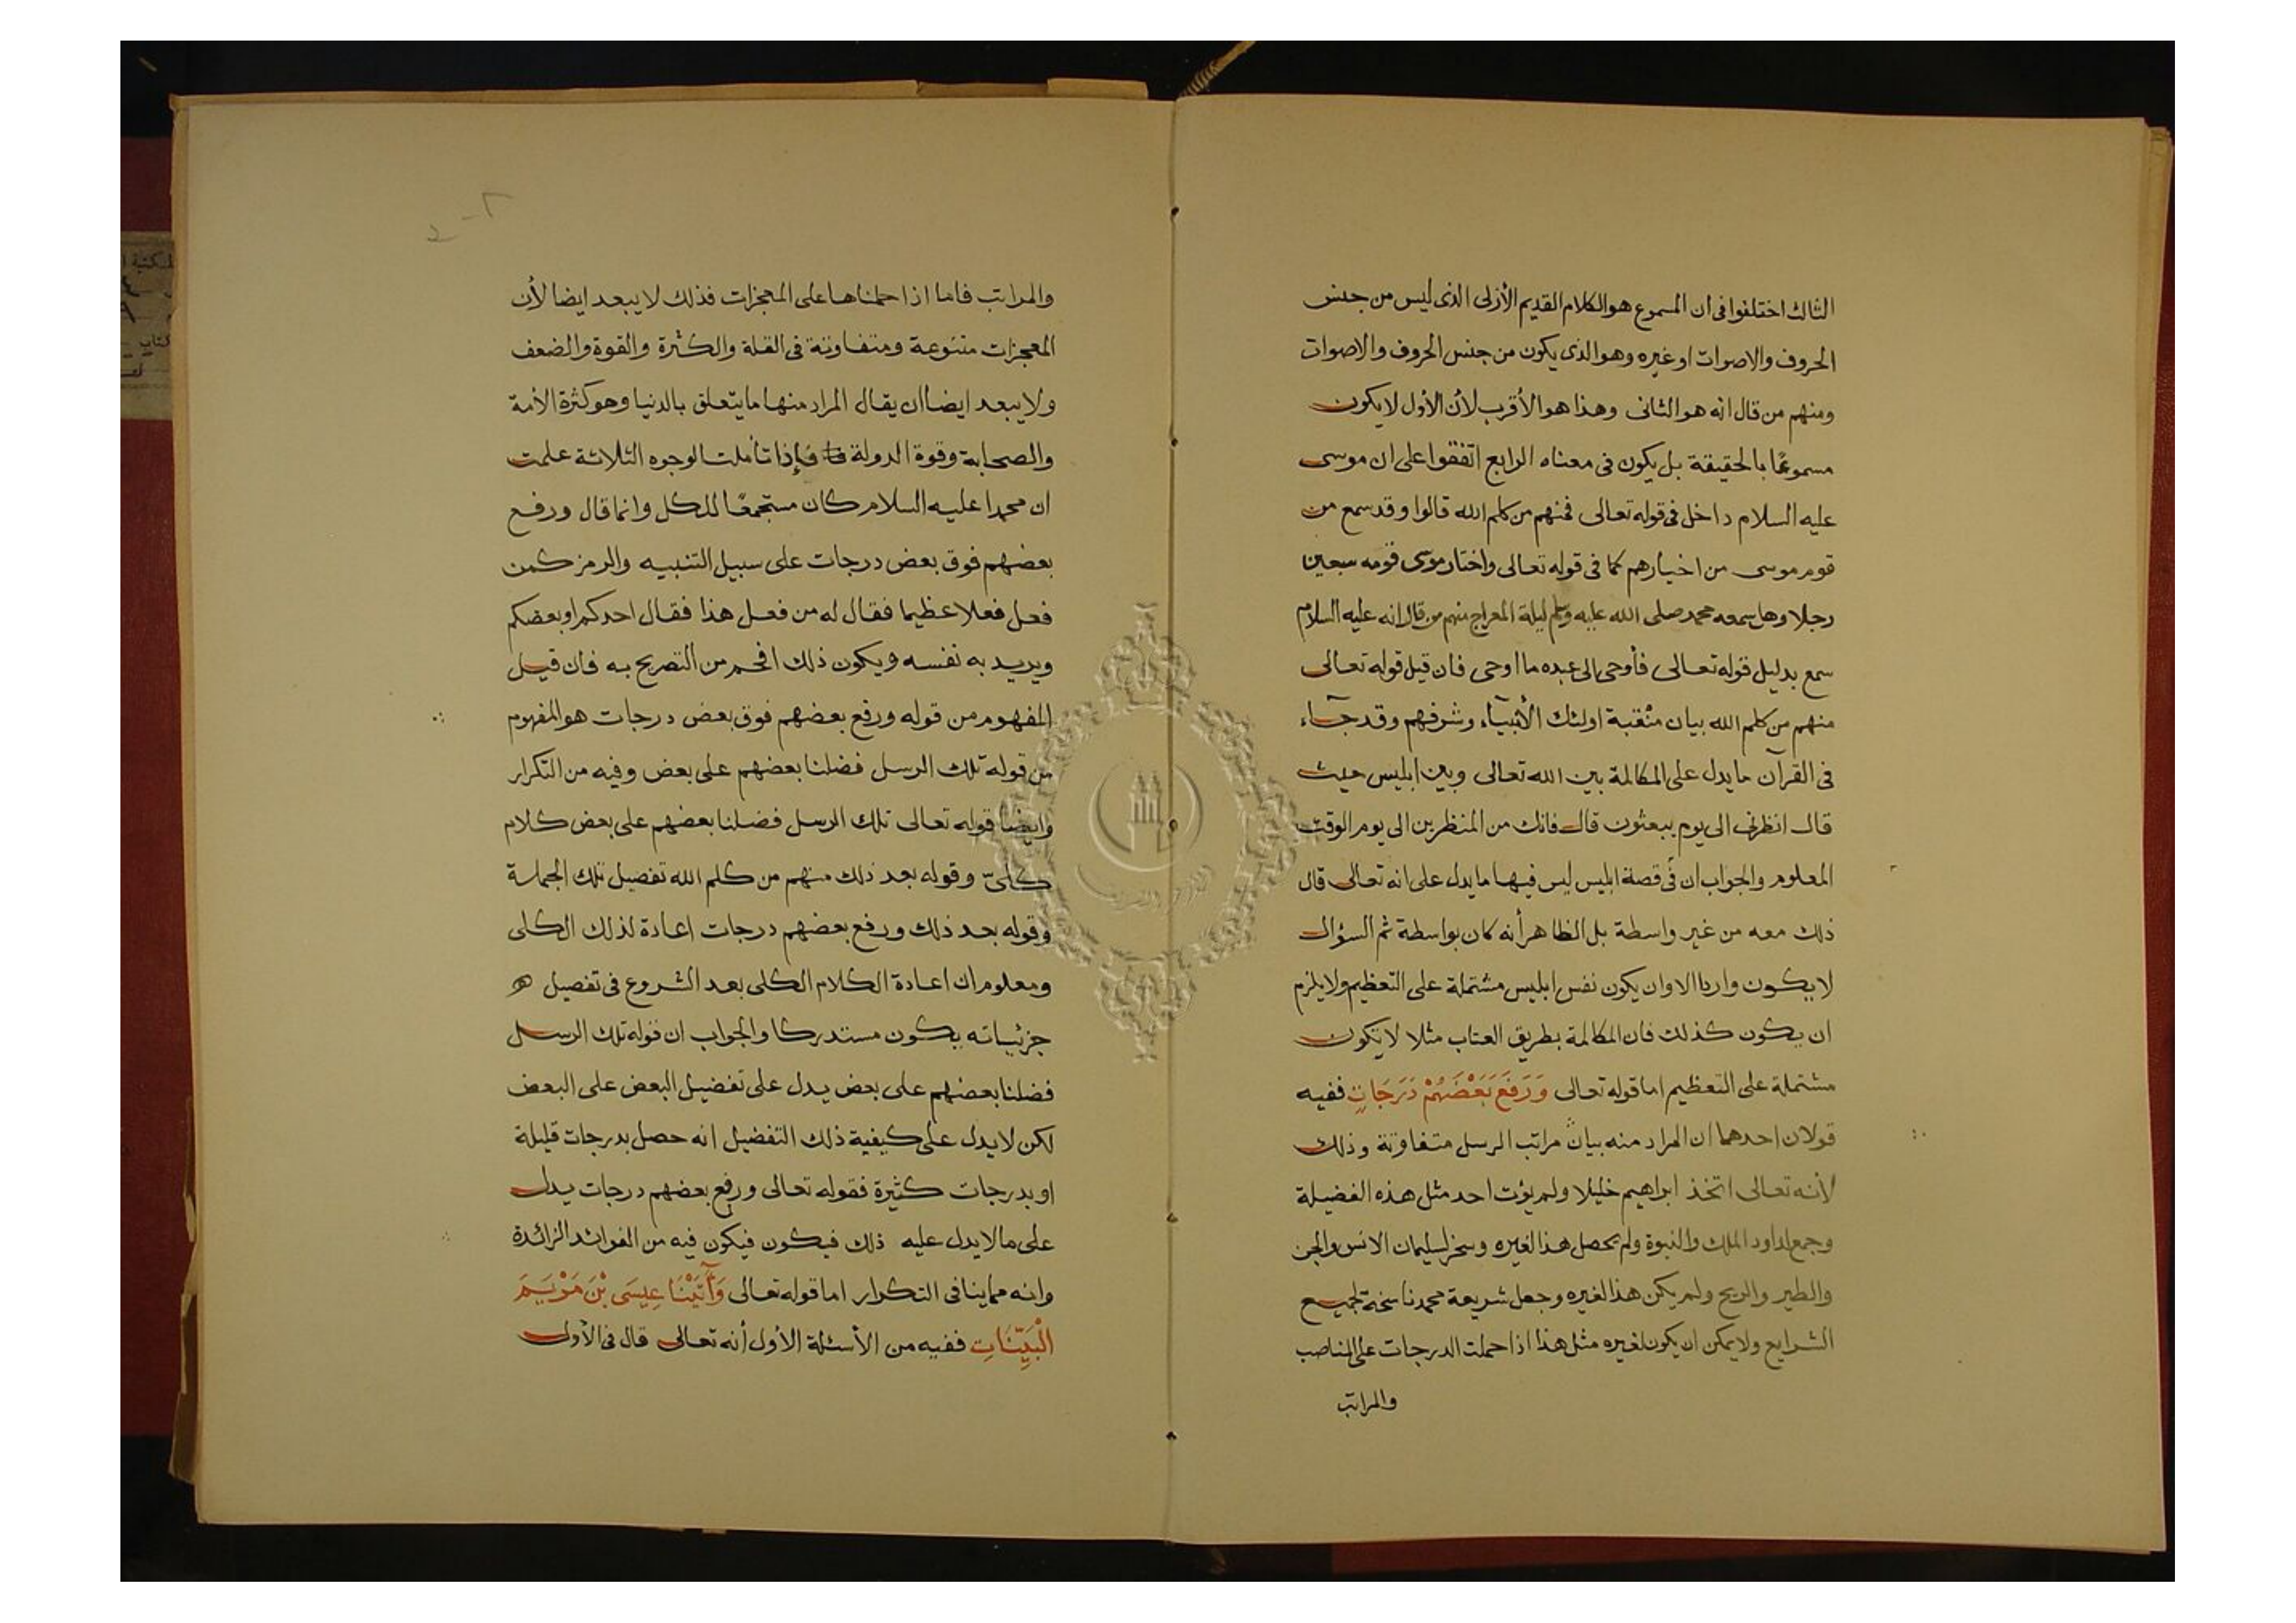 الثالث اختلفوا فى ان المسموع هو الكلام القديم الأزلى الذى ليس من جنس
الحروف والاصوات او غيره وهو الذى يكون من جنس الحروف والاصوات
ومنهم من قال انه هو الثانى وهذا هو الأقرب لأن الأول لا يكون
مسموعًا بالحقيقة بل يكون فى معناه الرابع اتفقوا على ان موسى
عليه السلام داخل فى قوله تعالى فمنهم من كلم الله قالوا وقد سمع من
قوم موسى من اخيارهم كما فى قوله تعالى واختار موسى قومه سبعين
رجلا وهل سمعه محمد صلى الله عليه وسلم ليلة المعراج منهم من قال انه عليه السلام
سمع بدليل قوله تعالى فأوحى الى عبده ما اوحى فان قيل قوله تعالى
منهم من كلم الله بيان منقبة اولئك الأنبياء وشرفهم وقد جآء
فى القرآن ما يدل على المكالمة بين الله تعالى وبين ابليس حيث
قال انظرنى الى يوم يبعثون قال فانك من المنظرين الى يوم الوقت
المعلوم والجواب ان فى قصة ابليس ليس فيها ما يدل على انه تعالى قال
ذلك معه من غير واسطة بل الظاهر أنه كان بواسطة ثم السؤال
لا يكون واردا الا وان يكون نفس ابليس مشتملة على التعظيم ولا يلزم
ان يكون كذلك فان المكالمة بطريق العتاب مثلا لا تكون
مشتملة على التعظيم اما قوله تعالى وَرَفَعَ بَعْضَهُمْ دَرَجَاتٍ ففيه
قولان احدهما ان المراد منه بيان مراتب الرسل متفاوتة وذلك
لأنه تعالى اتخذ ابراهيم خليلا ولم يؤت احد مثل هذه الفضيلة
وجمع لداود الملك والنبوة ولم يحصل هذا لغيره وسخر لسليمان الانس والجن
والطير والريح ولم يكن هذا لغيره وجعل شريعة محمد ناسخة لجميع
الشرايع ولا يمكن ان يكون لغيره مثل هذا اذا حملت الدرجات على المناصب
والمراتب
والمراتب فاما اذا حملناها على المعجزات فذلك لا يبعد ايضا لأن
المعجزات متنوعة ومتفاوتة فى القلة والكثرة والقوة والضعف
ولا يبعد ايضا ان يقال المراد منها ما يتعلق بالدنيا وهو كثرة الأمة
والصحابة وقوة الدولة فإذا تأملت الوجوه الثلاثة علمت
ان محمدا عليه السلام كان مستجمعًا للكل وانما قال ورفع
بعضهم فوق بعض درجات على سبيل التنبيه والرمز كمن
فعل فعلا عظيما فقال له من فعل هذا فقال احدكم او بعضكم
ويريد به نفسه ويكون ذلك افخم من التصريح به فان قيل
المفهوم من قوله ورفع بعضهم فوق بعض درجات هو المفهوم
من قوله تلك الرسل فضلنا بعضهم على بعض وفيه من التكرار
وايضا قوله تعالى تلك الرسل فضلنا بعضهم على بعض كلام
كلىّ وقوله بعد ذلك منهم من كلم الله تفصيل تلك الجملة
وقوله بعد ذلك ورفع بعضهم درجات اعادة لذلك الكلى
ومعلوم ان اعادة الكلام الكلى بعد الشروع فى تفصيل
جزئياته يكون مستدركا والجواب ان قوله تلك الرسل
فضلنا بعضهم على بعض يدل على تفضيل البعض على البعض
لكن لا يدل على كيفية ذلك التفضيل انه حصل بدرجات قليلة
او بدرجات كثيرة فقوله تعالى ورفع بعضهم درجات يدل
على ما لا يدل عليه ذلك فيكون فيكون فيه من الفوائد الزائدة
وانه مما ينافى التكرار اما قوله تعالى وَآتَيْنَا عِيسَى بْنَ مَرْيَمَ
الْبَيِّنَاتِ ففيه من الأسئلة الأول أنه تعالى قال فى الأول